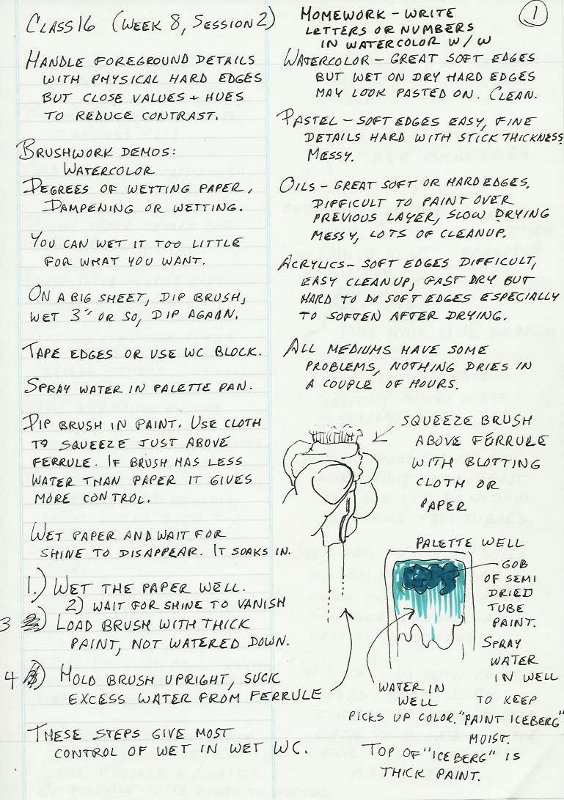 Class 16 (Week 8, Session 2)
Handle foreground details
with physical hard edges
but close values + hues
to reduce contrast.
Brushwork demos:
Watercolor
Degrees of wetting paper,
Dampening or wetting.
You can wet it too little
for what you want.
On a big sheet, dip brush,
wet 3" or so, dip again.
Tape edges or use WC block.
Spray water in palette pan.
Dip brush in paint. Use cloth
to squeeze just above
ferrule. If brush has less
water than paper it gives
more control.
Wet paper and wait for
shine to disappear. It soaks in.
1.) Wet the paper well.
2) wait for shine to vanish
3) Load brush with thick
paint, not watered down.
4) Hold brush upright, suck
excess water from ferrule
These steps give most
control of wet in wet WC.
1
Homework - Write
letters or numbers
in watercolor w/w
Watercolor - great soft edges
but wet on dry hard edges
may look pasted on. Clean.
Pastel - soft edges easy, fine
details hard with stick thickness
messy.
Oils - great soft or hard edges.
difficult to paint over
previous layer, slow drying
messy, lots of cleanup.
Acrylics - soft edges difficult,
easy cleanup, fast dry but
hard to do soft edges especially
to soften after drying.
All mediums have some
problems, nothing dries in
a couple of hours.
Squeeze brush
above ferrule
with blotting
cloth or
paper
Palette well
Gob
of semi
dried
tube
paint.
Spray
water
in well
to keep
"paint iceberg"
moist.
Water in
well
picks up color.
Top of "iceberg" is
thick paint.